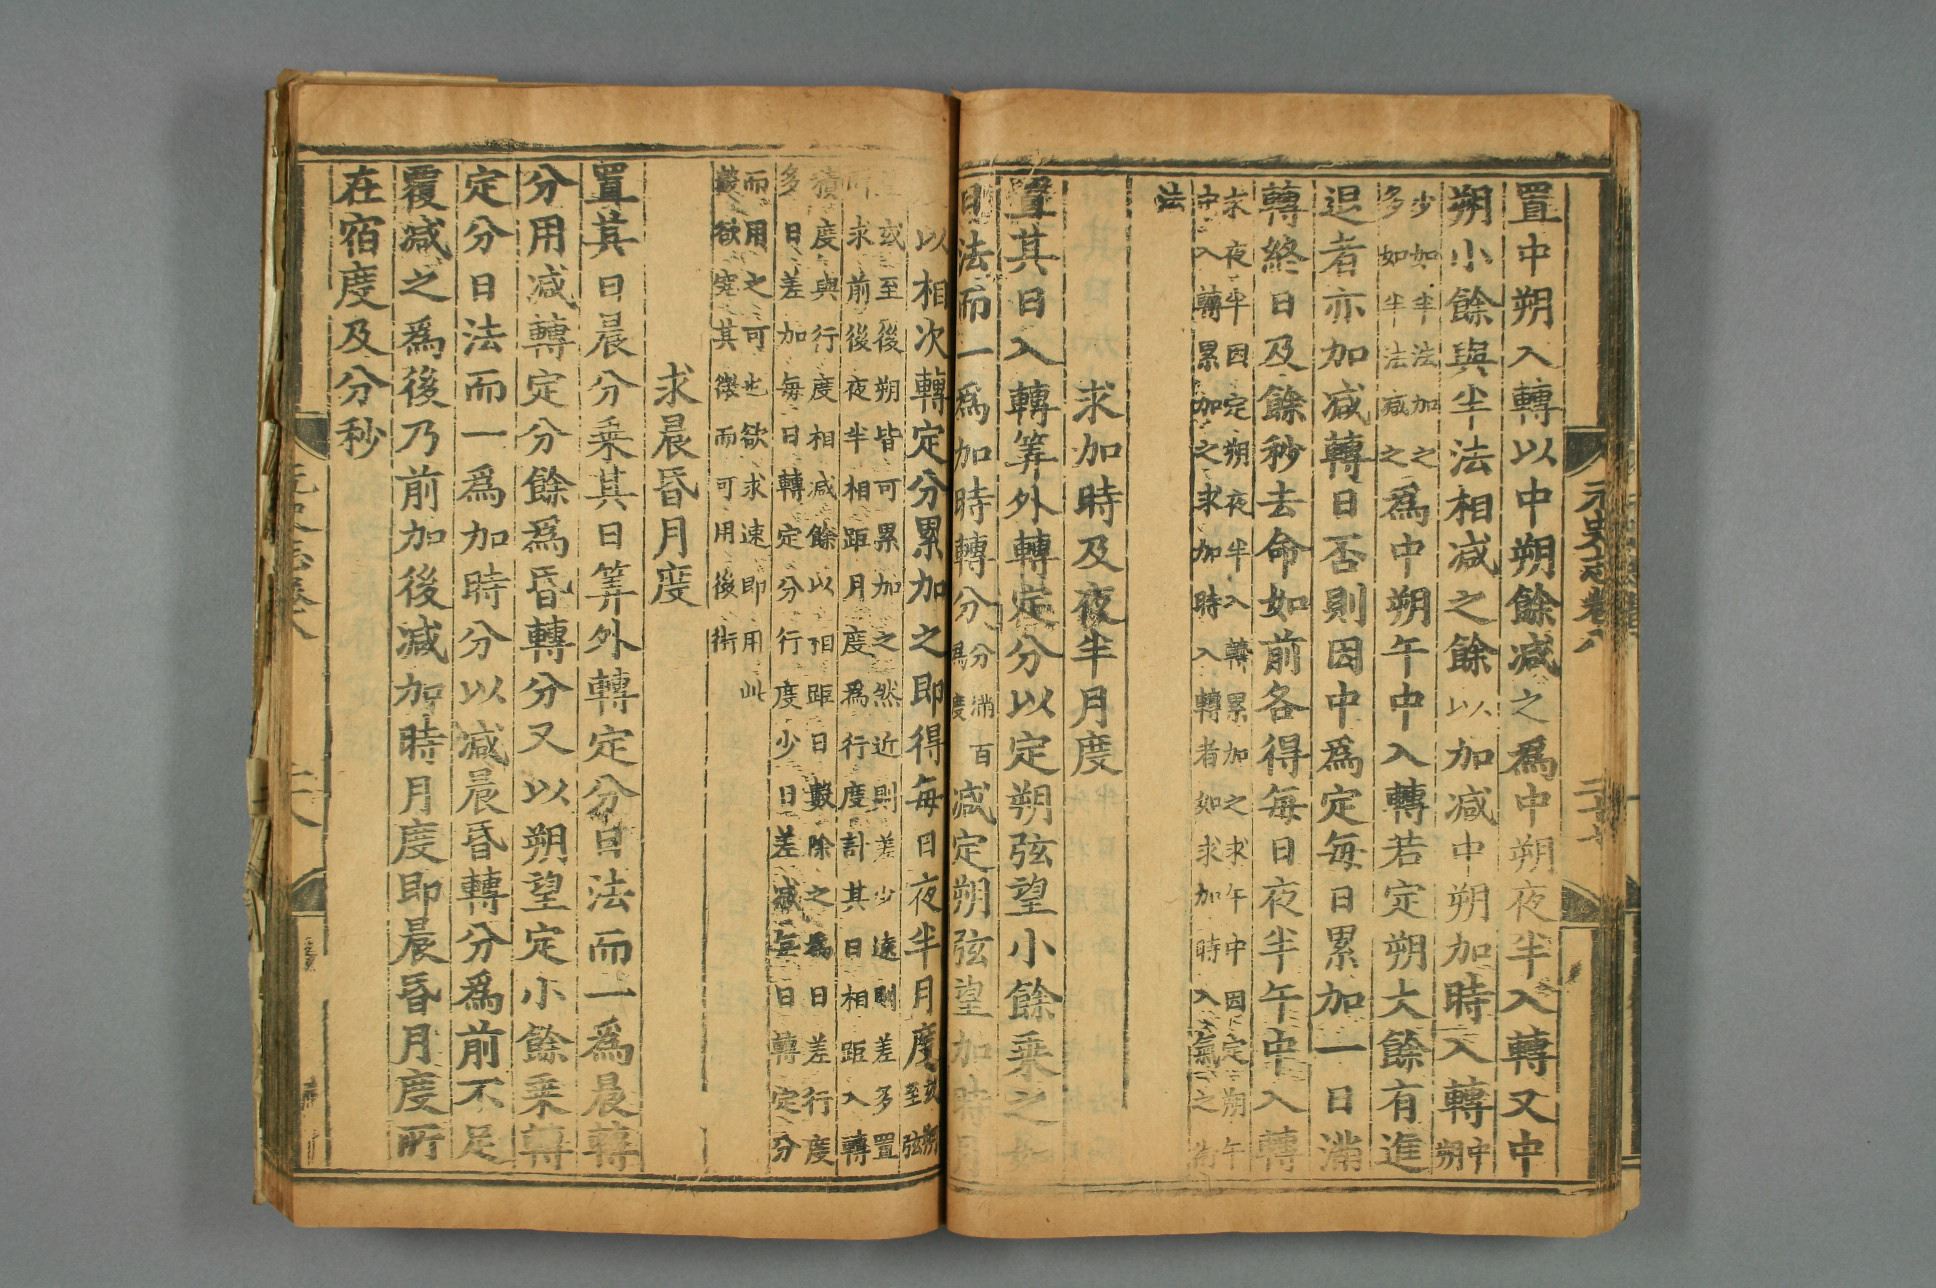 元史志卷八
二十七
置中朔入轉以中朔餘减之爲中朔夜半入轉又中
朔小餘與半法相减之餘以加减中朔加時入轉中朔
少如半法加之
多如半法减之爲中朔午中入轉若定朔大餘有進
退者亦加减轉日否則因中爲定每日累加一日滿
轉終日及餘秒去命如前各得每日夜半午中入轉
求夜半因定朔夜半入轉累加之求午中因定朔午
中入轉累加之求加時入轉者如求加時入氣之
法
求加時及夜半月度
置其日入轉筭外轉定分以定朔弦望小餘乘之如
日法而一爲加時轉分分滿百爲度减定朔弦望加時月
以相次轉定分累加之即得每日夜半月度或朔至弦
或至後朔皆可累加之然近則差少遠則差多置
所求前後夜半相距月度爲行度計其日相距入轉
積度與行度相减餘以相距日數除之爲日差行度
多日差加每日轉定分行度少日差减每日轉定分
而用之可也欲求速即用此
數欲究其微而可用後術
求晨昏月度
置其日晨分乘其日筭外轉定分日法而一爲晨轉
分用减轉定分餘爲昏轉分又以朔望定小餘乘轉
定分日法而一爲加時分以减晨昏轉分爲前不足
覆减之爲後乃前加後减加時月度即晨昏月度所
在宿度及分秒